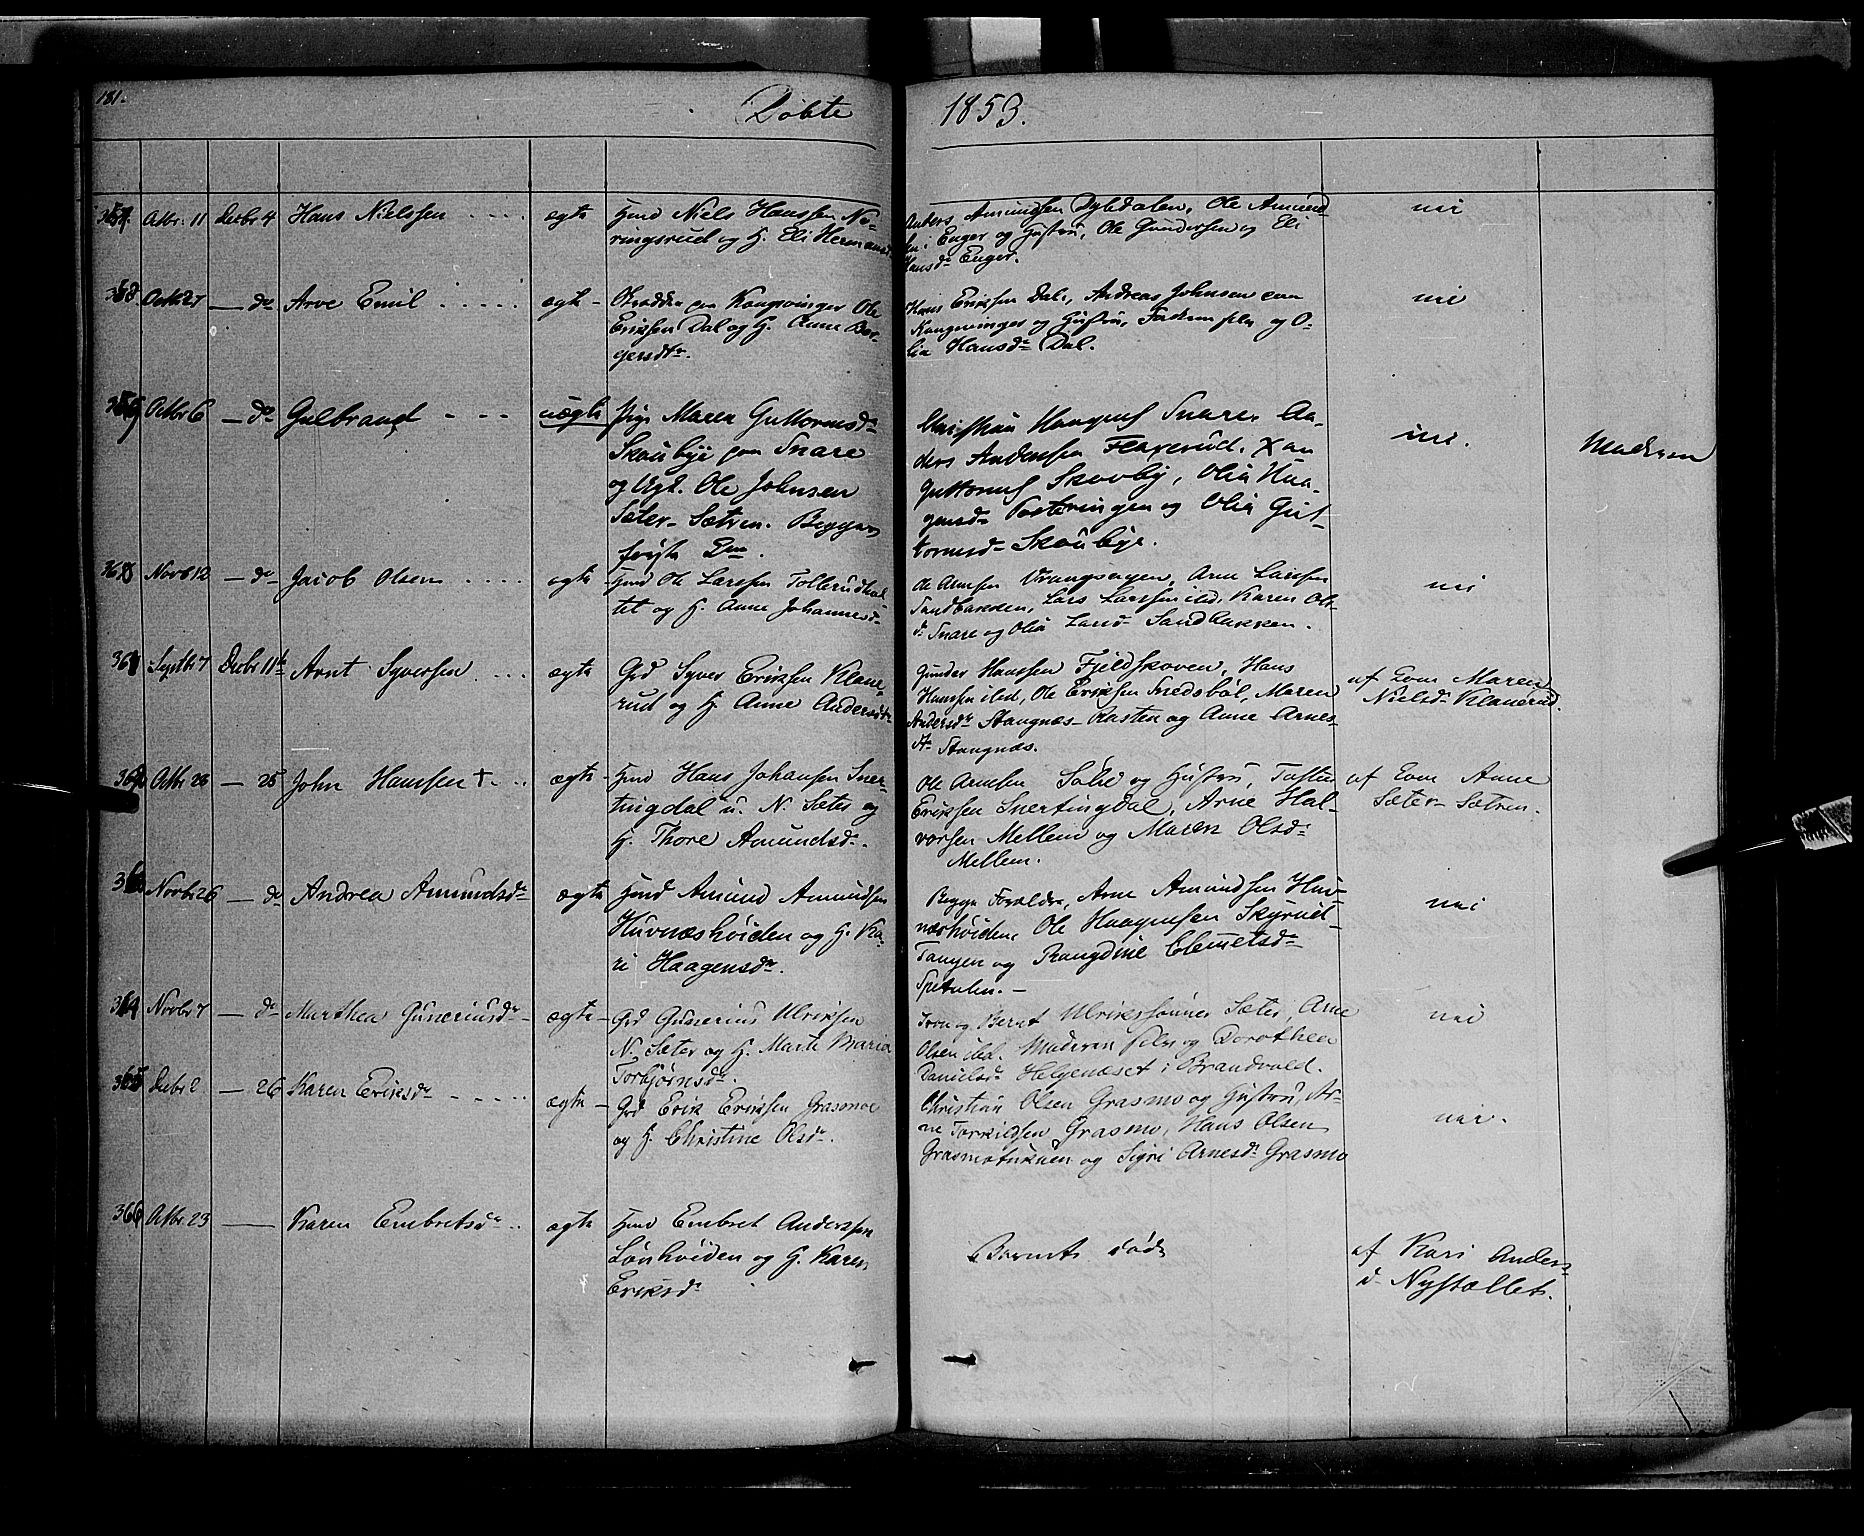 181.
Döbte
1853.
357. Octbr. 11 Decbr 4 Hans Nielssen ægte Hmd Niels Hanssen No-
ringsrud og H. Eli Hermansd.
Anders Amundsen Dybdalen, Ole Amund
sen Enger og Hustru, Ole Gundersen og Eli
Hansdr Enger.
nei
358 Octb 27 — do Arve Emil ægte
Eriksen Dal og H. Anne Bor-
gersdtr.
Hans Eriksen Dal, Andreas Johnsen paa
Kongsvinger og Hustru, Faderen selv og O-
lia Hansdr Dal.
nei
359 Octbr 6 — do Gulbrand uægte Pige Maren Guttormsdr
Skoubye paa Snare
og Ugk. Ole Johnsen
Sæter-Sætren. Begges
første
Christian Haagens Snare, An-
ders Andersen Flaxerud,
Guttorms Skovby, Olia Haa-
gensd. og Olia Gut-
tormsd. Skoubye.
nei.
Moderen
360 Novb 12 — do Jacob Olsen ægte Hmd Ole Larssen Tollerudhol
tet og H. Anne Johannesd.
Ole Arnesen Vrangsagen, Arne Larssen
Sandbakken, Lars Larssen ibd, Karen Ols-
dr Snare og Olia Larsd Sandbakken.
nei
361 Septb 7 Decbr 11te Arnt Syversen ægte Grd Syver Eriksen Klane-
rud og H. Anne Andersdtr
Gunder Hanssen Fjeldskoven, Hans
Hanssen ibd, Ole Eriksen Snedsböl, Maren
Andersdr Stangnæs-Rasten og Anne Arnes-
dr Stangnæs.
af Eom Maren
Nielsd Klanerud.
362 Octbr 28 — 25 John Hanssen † ægte Hmd Hans Johansen Sner-
tingdal u. N. Sæter og
H. Thore Amundsd.
Ole Arnesen Solie og Hustru, Tosten
Eriksen Snertingdal, Arne Hal-
vorsen Mellem og Maren Olsd.
Mellem.
af Eom Anne
Sæter-Sætren.
363 Novbr 26 — do Andrea Amundsdr ægte Hmd Amund Amundsen
Huvnæshöiden og H. Ka-
ri Haagensdr.
Begge Forældre, Arne Amundsen Huv-
næshöiden, Ole Haagensen Skyrud-
Tangen og Rangdine Clemetsdr
Spetalen. —
nei
364 Novbr 7 — do Marthea Guneriusdr ægte Grd Gunerius Ulriksen
N. Sæter og H. Marte Maria
Torbjörnsdr.
Iver og Bernt Ulrikssönner Sæter, Arne
Olsen ibd. Moderen selv og Dorothea
Danielsdr Helgenæset i Brandvold.
nei
365 Decbr 2 — 26 Karen Eriksdr ægte Grd Erik Eriksen Grasmoe
og H. Christine Olsdr.
Christian Olsen Grasmo og Hustru, Ar-
ne Torkildsen Grasmo, Hans Olsen
og Sigri Arnesdr Grasmo
nei.
366 Octbr. 23 — Karen Embretsdr ægte Hmd Embret Anderssen
Lönhöiden og H. Karen
Eriksdr
Barnet död
af Kari Anders-
dr Nystollet.